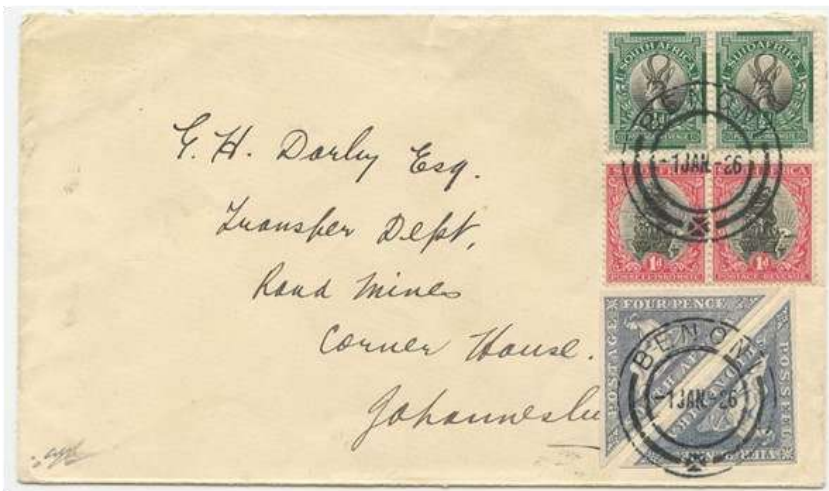 G. H. Darby Esq.
Transfer Dept,
Rand Mines
Corner House.
Johannesbu
SOUTH AFRICA
SUIDAFRIKA
BENONI
-1 JAN.-26
1d
1d
POSTAGE
FOUR PENCE
POSSEËL
BENONI
-1 JAN.-26